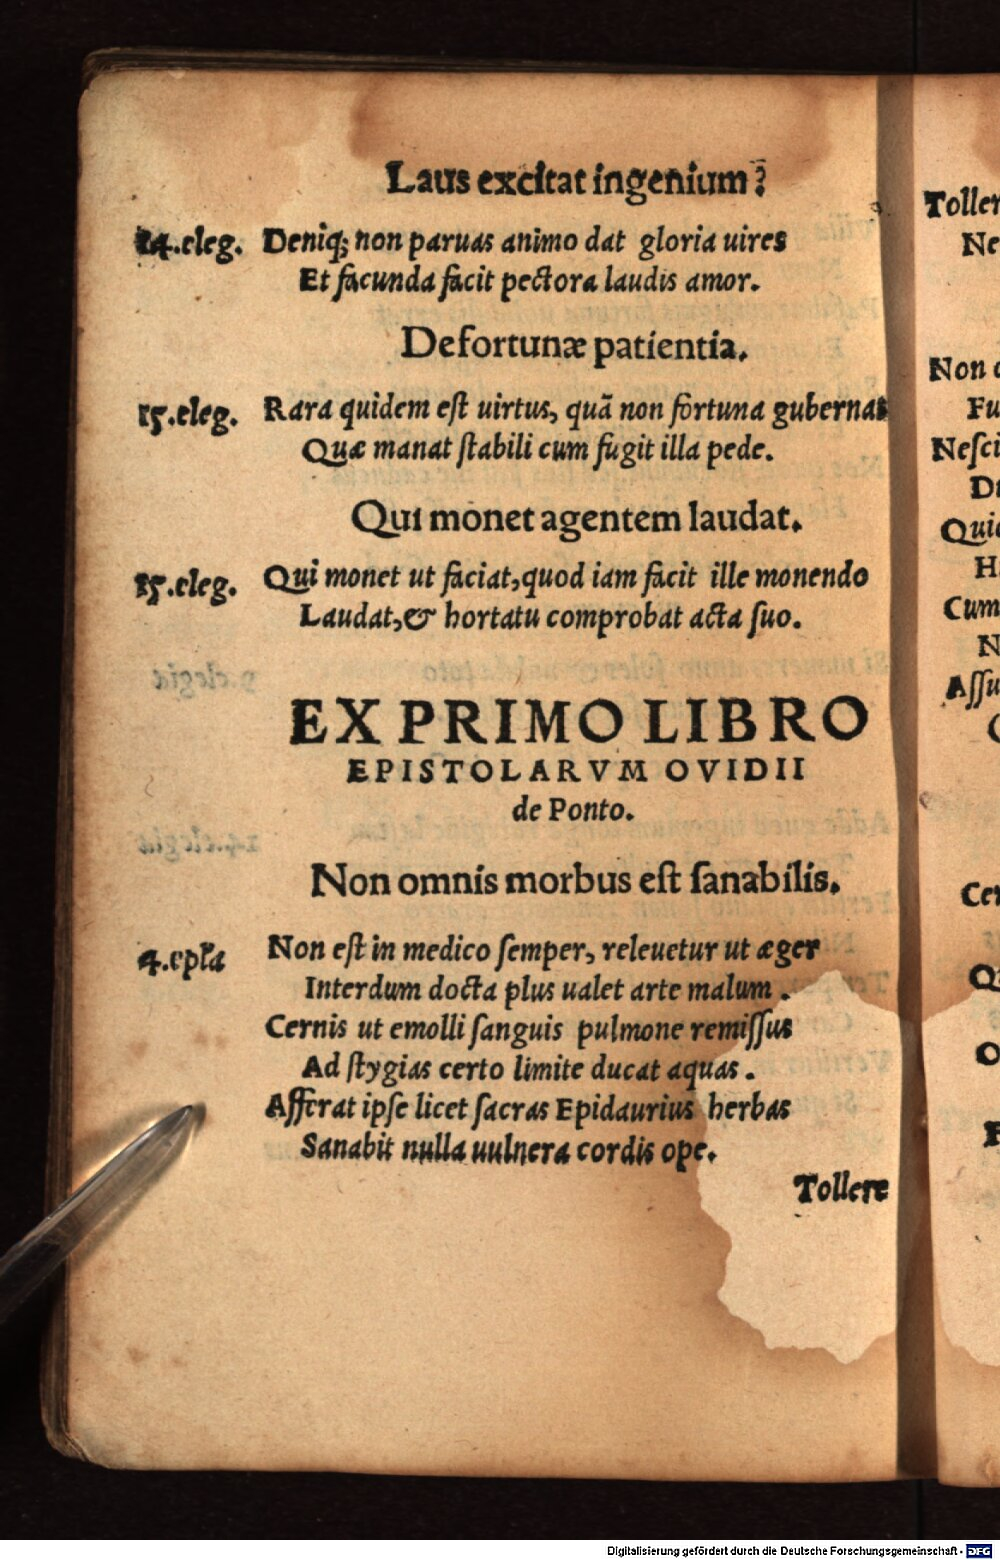 Laus excitat ingenium?
14.eleg. Deniq; non paruas animo dat gloria uires
Et facunda facit pectora laudis amor.
De fortunæ patientia.
15.eleg. Rara quidem est uirtus, quā non fortuna gubernat
Quæ manat stabili cum fugit illa pede.
Qui monet agentem laudat.
15.eleg. Qui monet ut faciat, quod iam facit ille monendo
Laudat, & hortatu comprobat acta suo.
EX PRIMO LIBRO
EPISTOLARVM OVIDII
de Ponto.
Non omnis morbus est sanabilis.
4.epła Non est in medico semper, releuetur ut æger
Interdum docta plus ualet arte malum.
Cernis ut emolli sanguis pulmone remissus
Ad stygias certo limite ducat aquas.
Afferat ipse licet sacras Epidaurius herbas
Sanabit nulla uulnera cordis ope.
Tollere
Toller
Ne
Non
Fu
Nesci
Qui
H
Cum
N
Assu
Cer
Digitalisierung gefördert durch die Deutsche Forschungsgemeinschaft - DFG